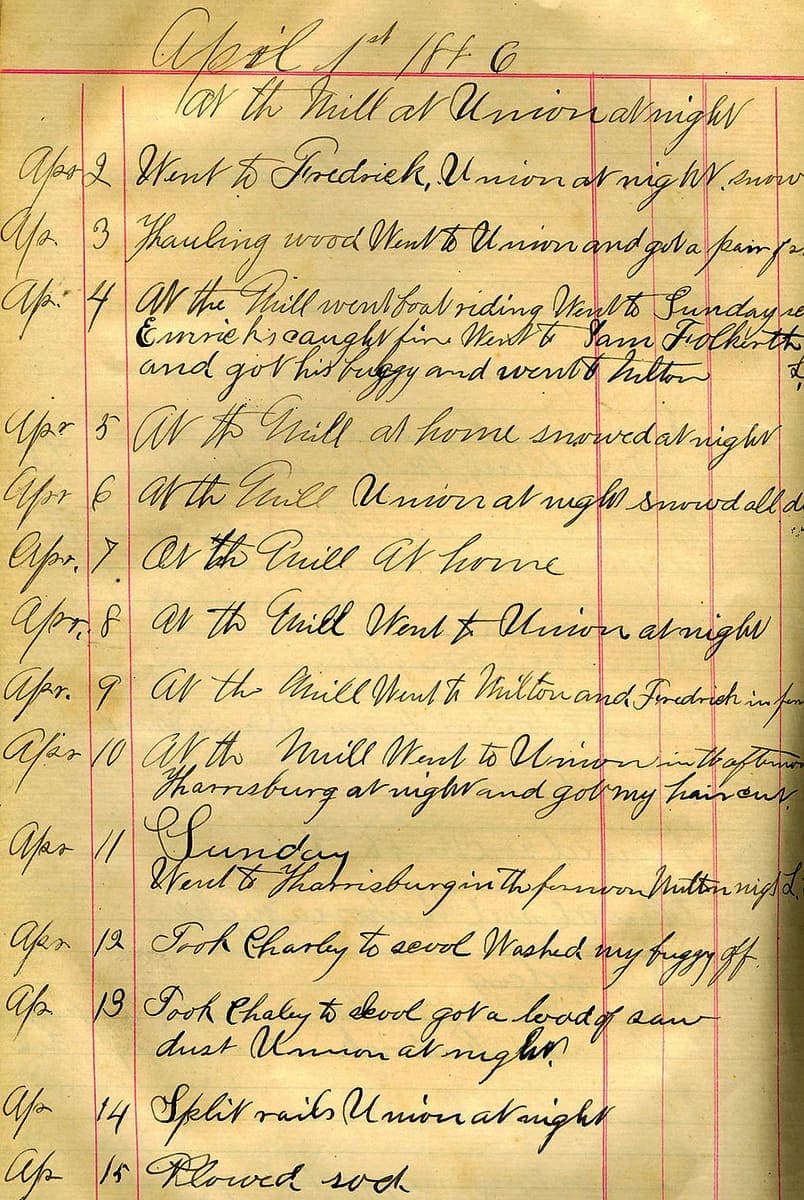 April 1st 1886
at th Mill at Union at night
Apr 2 Went to Fredrick, Union at night. snow
Ap. 3 Hauling wood Went to Union and got a pair
Ap. 4 At the Mill went boat riding Went to Sunday
caught fire Went to Sam Folkerth
and got his buggy and went to Milton
Apr 5 At th Mill at home snowed at night
Apr 6 At th Mill Union at night snowd all d
Apr. 7 At th Mill At home
Apr. 8 At th Mill Went to Union at night
Apr. 9 At th Mill Went to Milton and Fredrick in
Apr 10 At th Mill Went to Union in th afternoo
Harrisburg at night and got my hair cut.
Apr 11 Sunday
Went to Harrisburg in th fornoon Milton
Apr 12 Took Charley to scool Washed my buggy off.
Ap 13 Took Chaley to scool got a load of saw
dust Union at night.
Ap 14 Split rails Union at night
Ap 15 Plowed sod